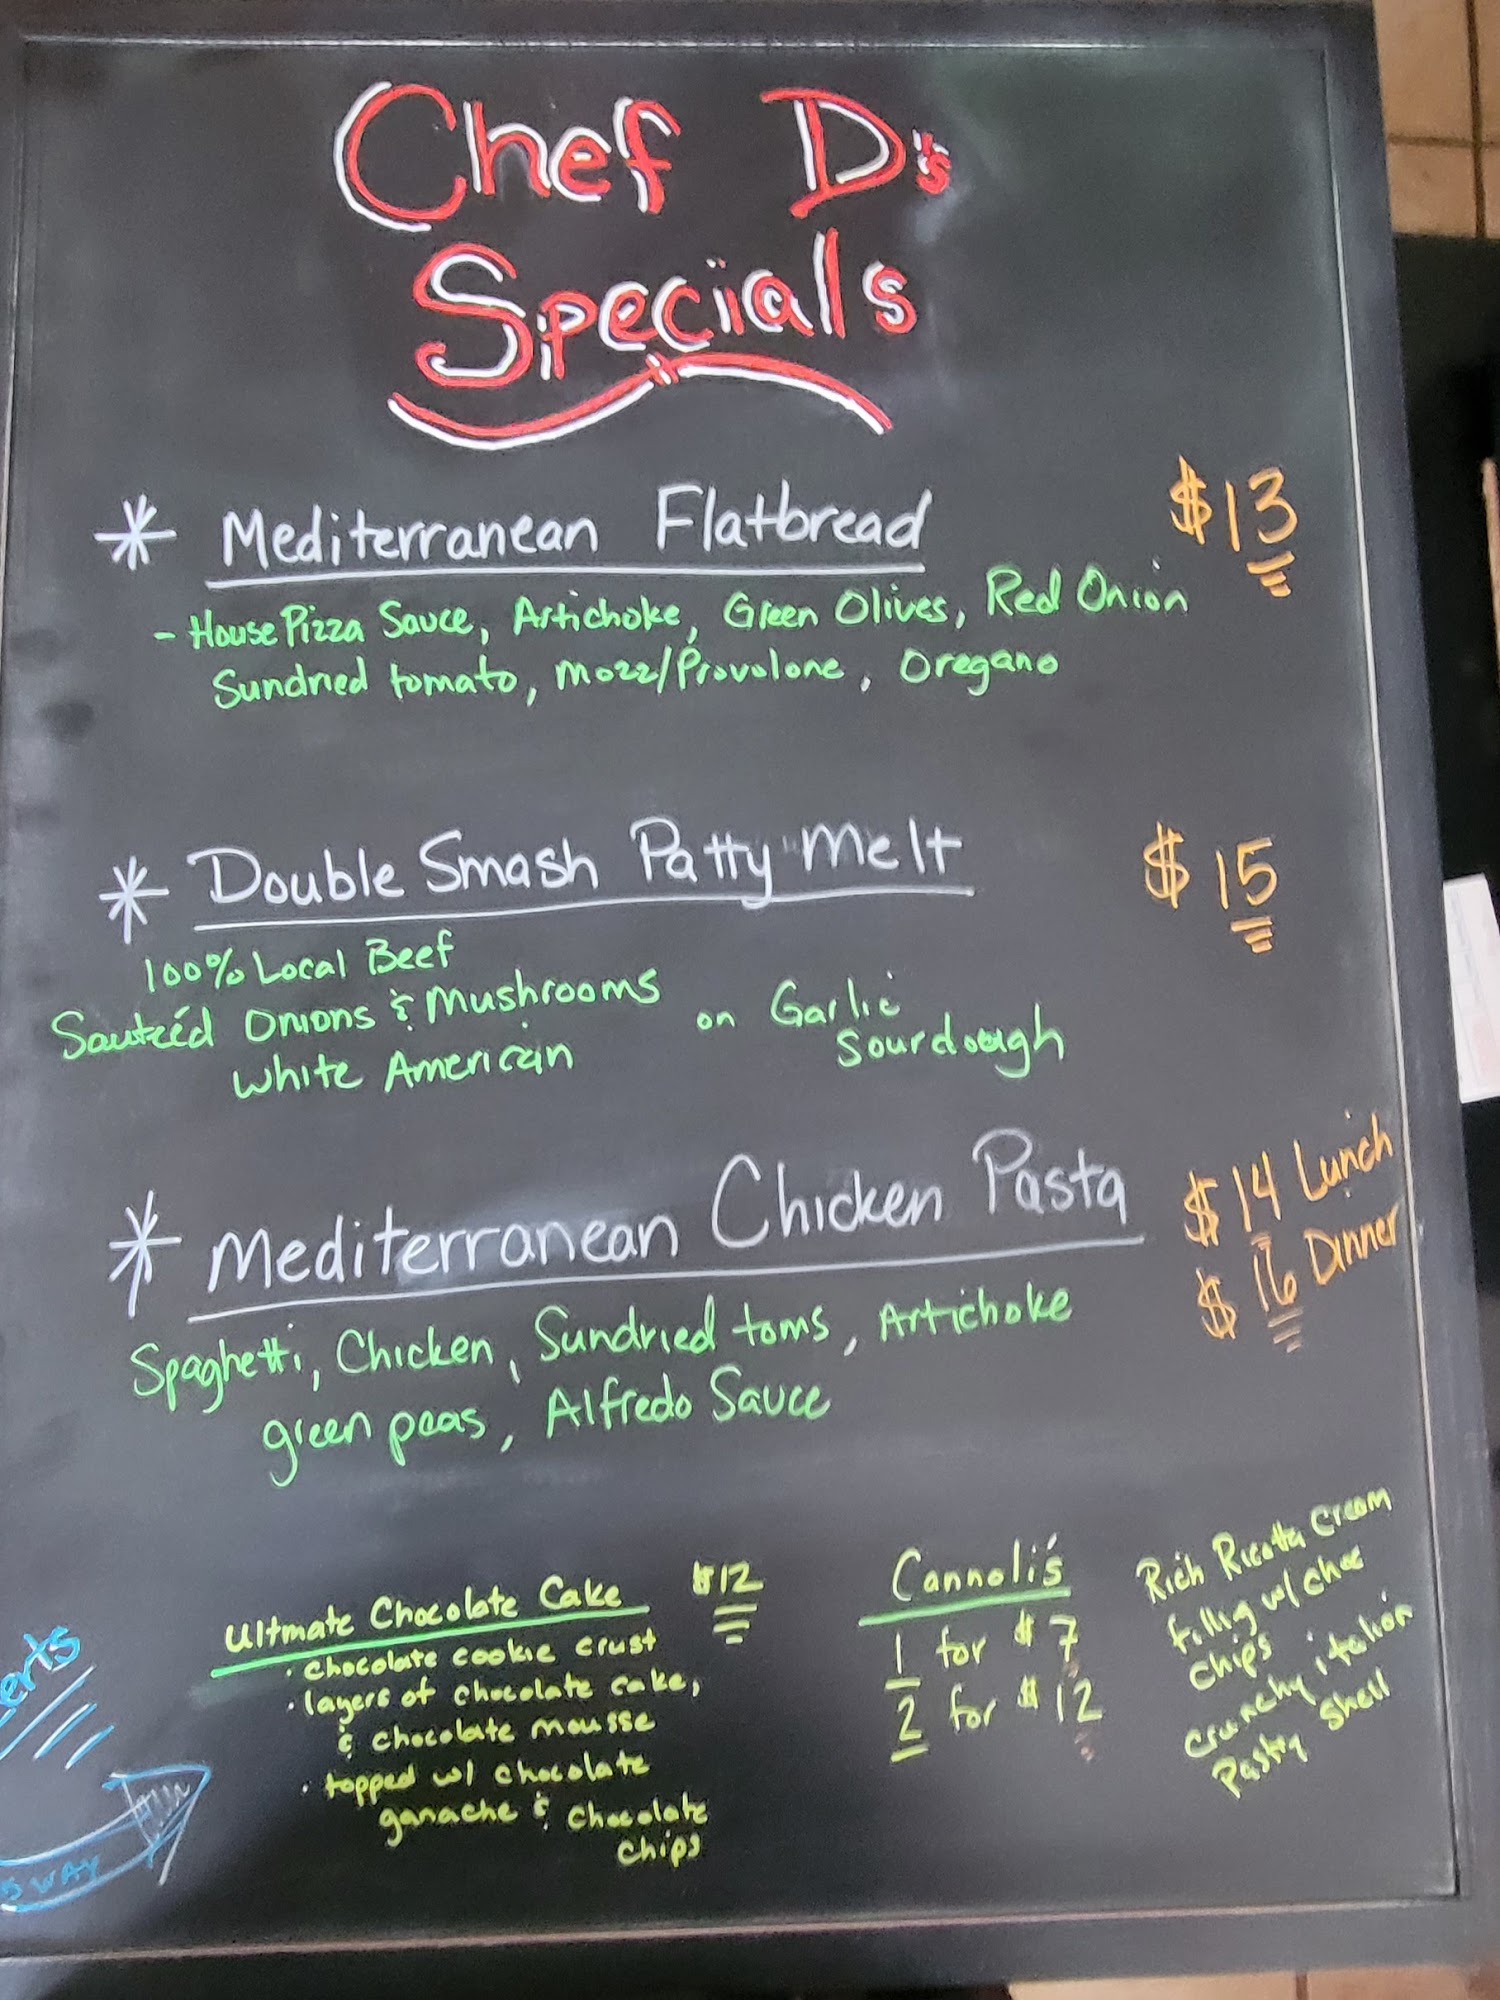 Chef D's
Specials
* Mediterranean Flatbread $13
- House Pizza Sauce, Artichoke, Green Olives, Red Onion
Sundried tomato, Mozz/Provolone, Oregano
* Double Smash Patty Melt $15
100% Local Beef
Sauteéd Onions & Mushrooms
White American
on Garlic
Sourdough
* Mediterranean Chicken Pasta
$14 Lunch
$16 Dinner
Spaghetti, Chicken, Sundried toms, Artichoke
green peas, Alfredo Sauce
erts
Ultmate Chocolate Cake $12
· chocolate cookie crust
· layers of chocolate cake,
& chocolate mousse
· topped w/ chocolate
ganache & chocolate
chips
Cannoli's
1 for $7
2 for $12
Rich Ricotta Cream
filling w/ choc
chips
crunchy italian
Pastry Shell
s WAY